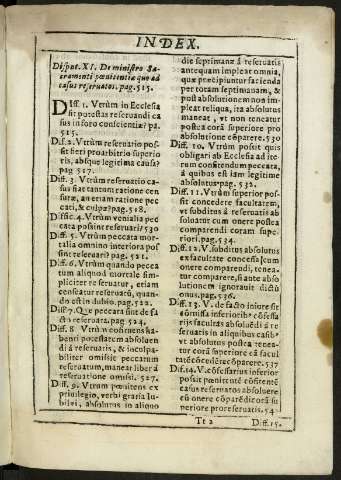 INDEX.
Disput. XI. De ministro Sa-
cramenti pœnitentiæ quo ad
casus reseruatos. pag. 515.
Diff. 1. Vtrùm in Ecclesia
sit potestas reseruandi ca
sus in foro conscientiæ? pa.
515.
Dif. 2. Vtrùm reseruatio pos-
sit fieri pro arbitrio superio
ris, absque legitima causa?
pag 517.
Diff. 3. Vtrùm reseruatio ca-
sus fiat tantum ratione cen
suræ, an etiam ratione pec
cati, & culpæ? pag. 518.
Diffic. 4. Vtrùm venialia pec
cata possint reseruari? 530
Diff. 5. Vtrùm peccata mor-
talia omnino interiora pos
sint reseruari? pag. 521.
Diff. 6. Vtrùm quando pecca
tum aliquod mortale sim-
pliciter reseruatur, etiam
censeatur reseruatū, quan-
do est in dubio. pag. 522.
Diff. 7. Quæ peccata sint de fa-
cto reseruata. pag. 524.
Diff. 8 Vtrùm confitens ha-
benti potestatem absoluen
di à reseruatis, & inculpa-
biliter omissit peccatum
reseruatum, manear liber à
reseruatione omissi. 527.
Diff. 9. Vtrum pœnitens ex
priuilegio, verbi gratia Iu-
bilæi, absolutus in aliquo
die septimanæ à reseruatis
antequam impleat omnia,
quæ præcipiuntur facienda
per totam septimanam, &
post absolutionem non im
pleat reliqua, ita absolutus
maneat, vt non teneatur
postea corã superiore pro
absolutione cōparere. 530
Diff. 10. Vtrùm possit quis
obligari ab Ecclesia ad ite-
rum confitendum peccata,
à quibus est iam legitime
absolutus. pag. 532.
Diff. 11. Vtrùm superior pos-
sit concedere facultatem,
vt subditus à reseruatis ab
soluatur cum onere postea
comparendi coram supe-
riori. pag. 534.
Diff. 12. V. subditus absolutus
ex facultate concessa [cum
onere comparendi, tenea-
tur comparere, si ante abso
lutionem ignorauit dictū
onus. pag. 536.
Diff. 13. V. de facto in iure sit
cōmissa inferiorib⁹ cōfessa
rijs facultas absoluēdi à re
seruatis in aliquibus casib⁹
vt absolutus postea tenea-
tur corã superiore cũ facul
tatē cōcedēre cōparere. 537
Dif. 14. V. cōfessarius inferior
possit pœnitētē cōfitentē
casus reseruatos absoluere
cũ onere cōparēdi corã su
periore pro reseruatis. 54
Tt 2
Diff. 15.